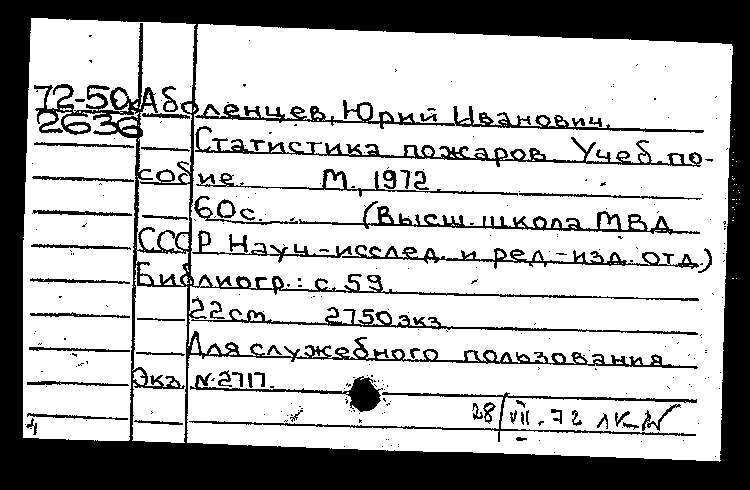 72-50 Аболенцев, Юрий Иванович.
2636
Статистика пожаров. Учеб. по-
собие. М., 1972.
60с. (Высш. школа МВД
СССР Науч.-исслед. и ред.-изд. отд.)
Библиогр.: с. 59.
22см. 2750экз.
Для служебного пользования.
Экз. N.2717.
28/VII.-72
4